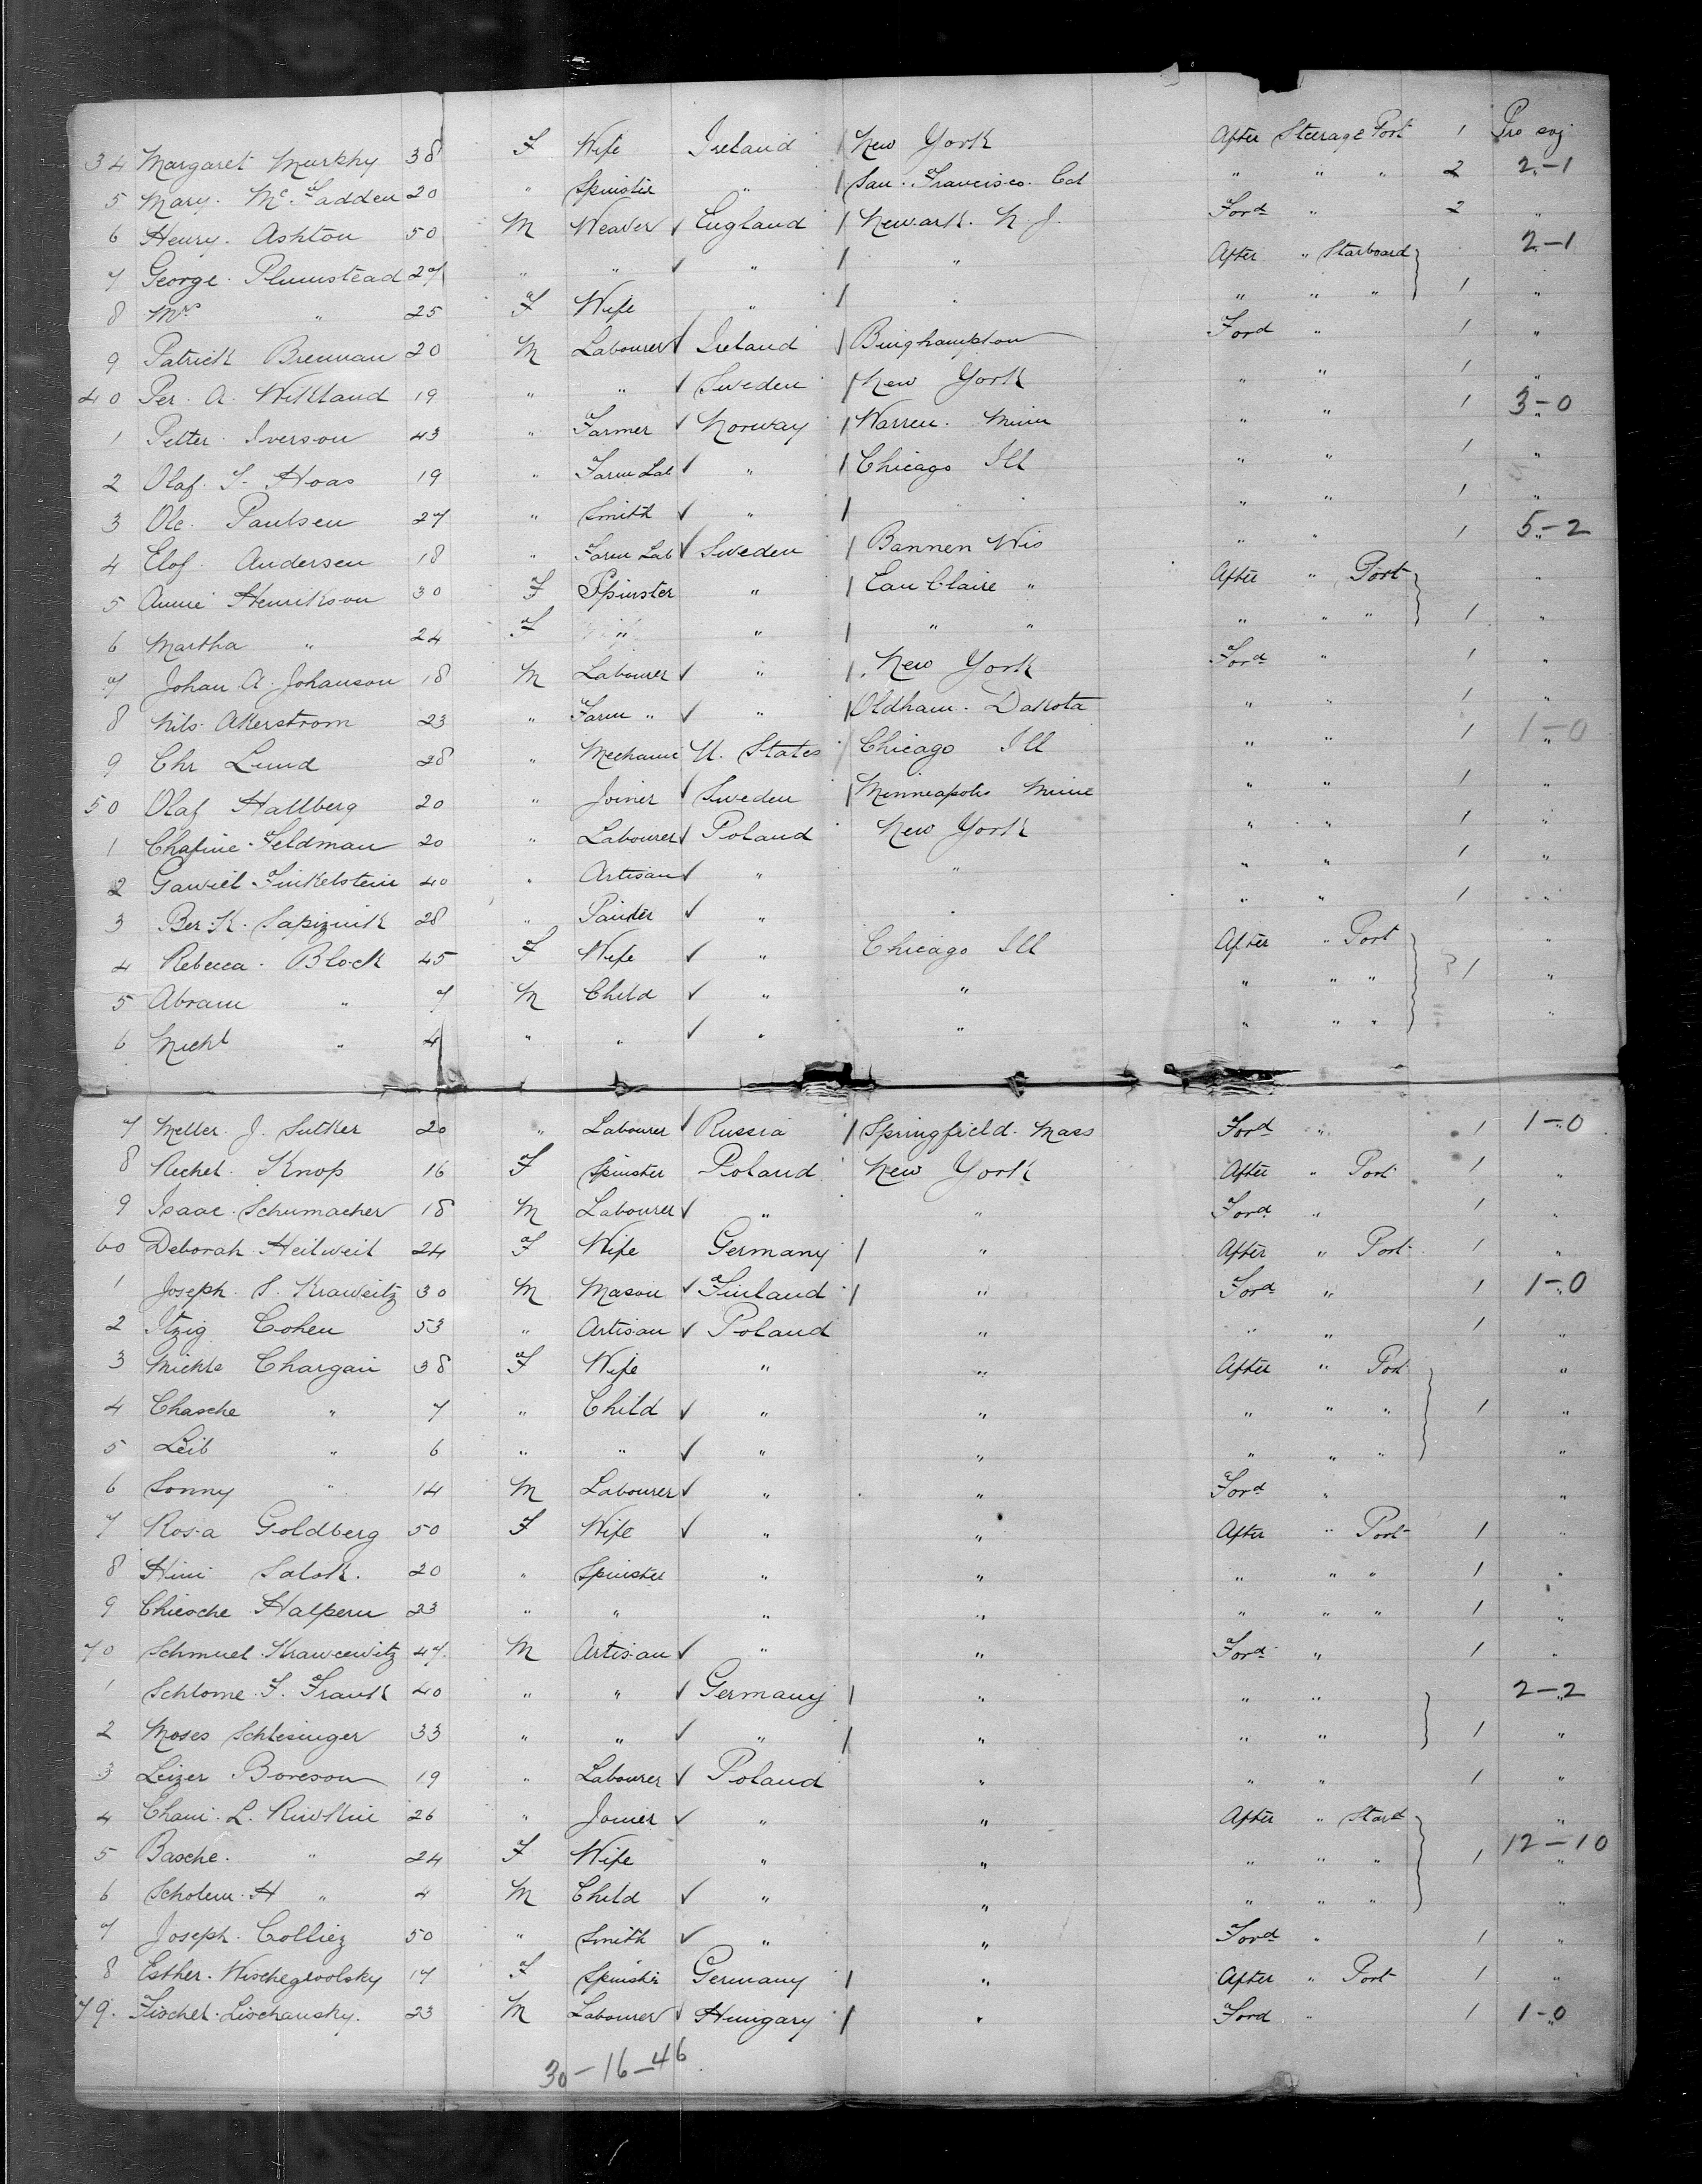 34 Margaret Murphy 38 F Wife Ireland / New York After Steerage Port 1 Pro soj
5 Mary. Mc.Fadden 20 " Spinster " / San. Francisco. Cal " " " 2 2-1
6 Henry. Ashton 50 M Weaver ✓ England / Newark. N. J. Ford " 2 "
7 George. Plumstead 27 " " ✓ " / " After " Starboard 2-1
8 Mrs " 25 F Wife " / " " " " 1 "
9 Patrick Brennan 20 M Labourer ✓ Ireland / Binghampton Ford " 1 "
40 Per. A. Wikland 19 " " ✓ Sweden / New York " " 1 "
1 Petter. Iverson 43 " Farmer ✓ Norway / Warren. Minn " " 1 3-0
2 Olaf. S. Hoas 19 " Farm Lab ✓ " / Chicago Ill " " 1 "
3 Ole. Paulsen 27 " Smith ✓ " / " " " 1 "
4 Elof. Andersen 18 " Farm Lab ✓ Sweden / Bannen Wis " " 1 5-2
5 Annie Henrikson 30 F Spinster " / Eau Claire " After " Port "
6 Martha " 24 F " " / " " " " " 1 "
7 Johan. A. Johanson 18 M Labourer ✓ " / New York Ford " 1 "
8 Nils. Akerstrom 23 " Farm " ✓ " / Oldham. Dakota " " 1 "
9 Chr Lund 28 " Mechanic U. States / Chicago Ill " " 1 1-0
50 Olaf Hallberg 20 " Joiner ✓ Sweden / Minneapolis Minne " " 1 "
1 Feldman 20 " Labourer ✓ Poland New York " " 1 "
2 Gawiel. Finkelstein 40 " Artisan ✓ " " " " 1 "
3 Ber. K. Sapiznik 28 " Painter ✓ " " " " 1 "
4 Rebecca. Block 45 F Wife ✓ " Chicago Ill After " Port "
5 Abram " 7 M Child ✓ " " " " " 1 "
6 " 4 " " ✓ " " " " " "
7 Meller. J. Sutker 20 " Labourer ✓ Russia / Springfield. Mass Ford " 1 1-0
8 Rechel. Knop 16 F Spinster Poland New York After " Port 1 "
9 Isaac. Schumacher 18 M Labourer ✓ " " Ford " 1 "
60 Deborah. Heilweil 24 F Wife Germany / " After " Port 1 "
1 Joseph. S. Kraweitz 30 M Mason ✓ Finland / " Ford " 1 1-0
2 Itzig Cohen 53 " Artisan ✓ Poland " " " 1 "
3 Michle Chargain 38 F Wife " " After " Port "
4 Chasche " 7 " Child ✓ " " " " " 1 "
5 Leib " 6 " " ✓ " " " " " "
6 Sonny " 14 M Labourer ✓ " " Ford " "
7 Rosa Goldberg 50 F Wife ✓ " " After " Port 1 "
8 Hini Salok. 20 " Spinster " " " " " 1 "
9 Chiesche Halpern 23 " " " " " " " 1 "
70 Schmuel. Krawcewitz 47 M Artisan ✓ " " Ford " 1 "
1 Schlome. F. Frank 40 " " ✓ Germany / " " " 2-2
2 Moses Schlesinger 33 " " ✓ " / " " " 1 "
3 Leizer Boreson 19 " Labourer ✓ Poland " " " 1 "
4 Chaui. L. Riwkin 26 " Joiner ✓ " " After " Stard "
5 Basche. " 24 F Wife " " " " " 1 12-10
6 Scholem. H " 4 M Child ✓ " " " " " "
7 Joseph. Colliez 50 " Smith ✓ " " Ford " 1 "
8 Esther. Wischegwolsky 17 F Spinster Germany / " After " Port 1 "
79. Fischel. Lischansky. 23 M Labourer ✓ Hungary / " Ford " 1 1-0
30-16-46